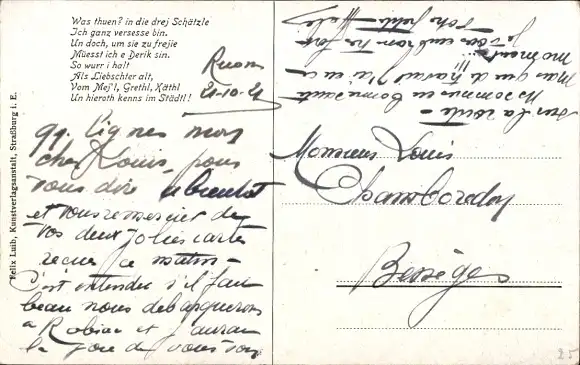 Was thuen? in die drej Schätzle
Ich ganz versesse bin.
Un doch, um sie zu frejie
Müesst ich e Derik sin.
So wurr i halt
Als Liebschter alt,
Vom Mej'l, Grethl, Käthl
Un hieroth kenns im Städtl!
Felix Luib, Kunstverlagsanstalt, Straßburg i. E.
Ruoms
21-10-21
qq. lignes mon
cher Louis, pour
vous dire à bientôt
et vous remercier de
vos deux jolies cartes
reçues ce matin -
C'est entendu s'il fait
beau nous débarquerons
à Robiac et j'aurai
la joie de vous voir
sur la route -
Monsieur Louis
Chamboredon
Bessèges
25